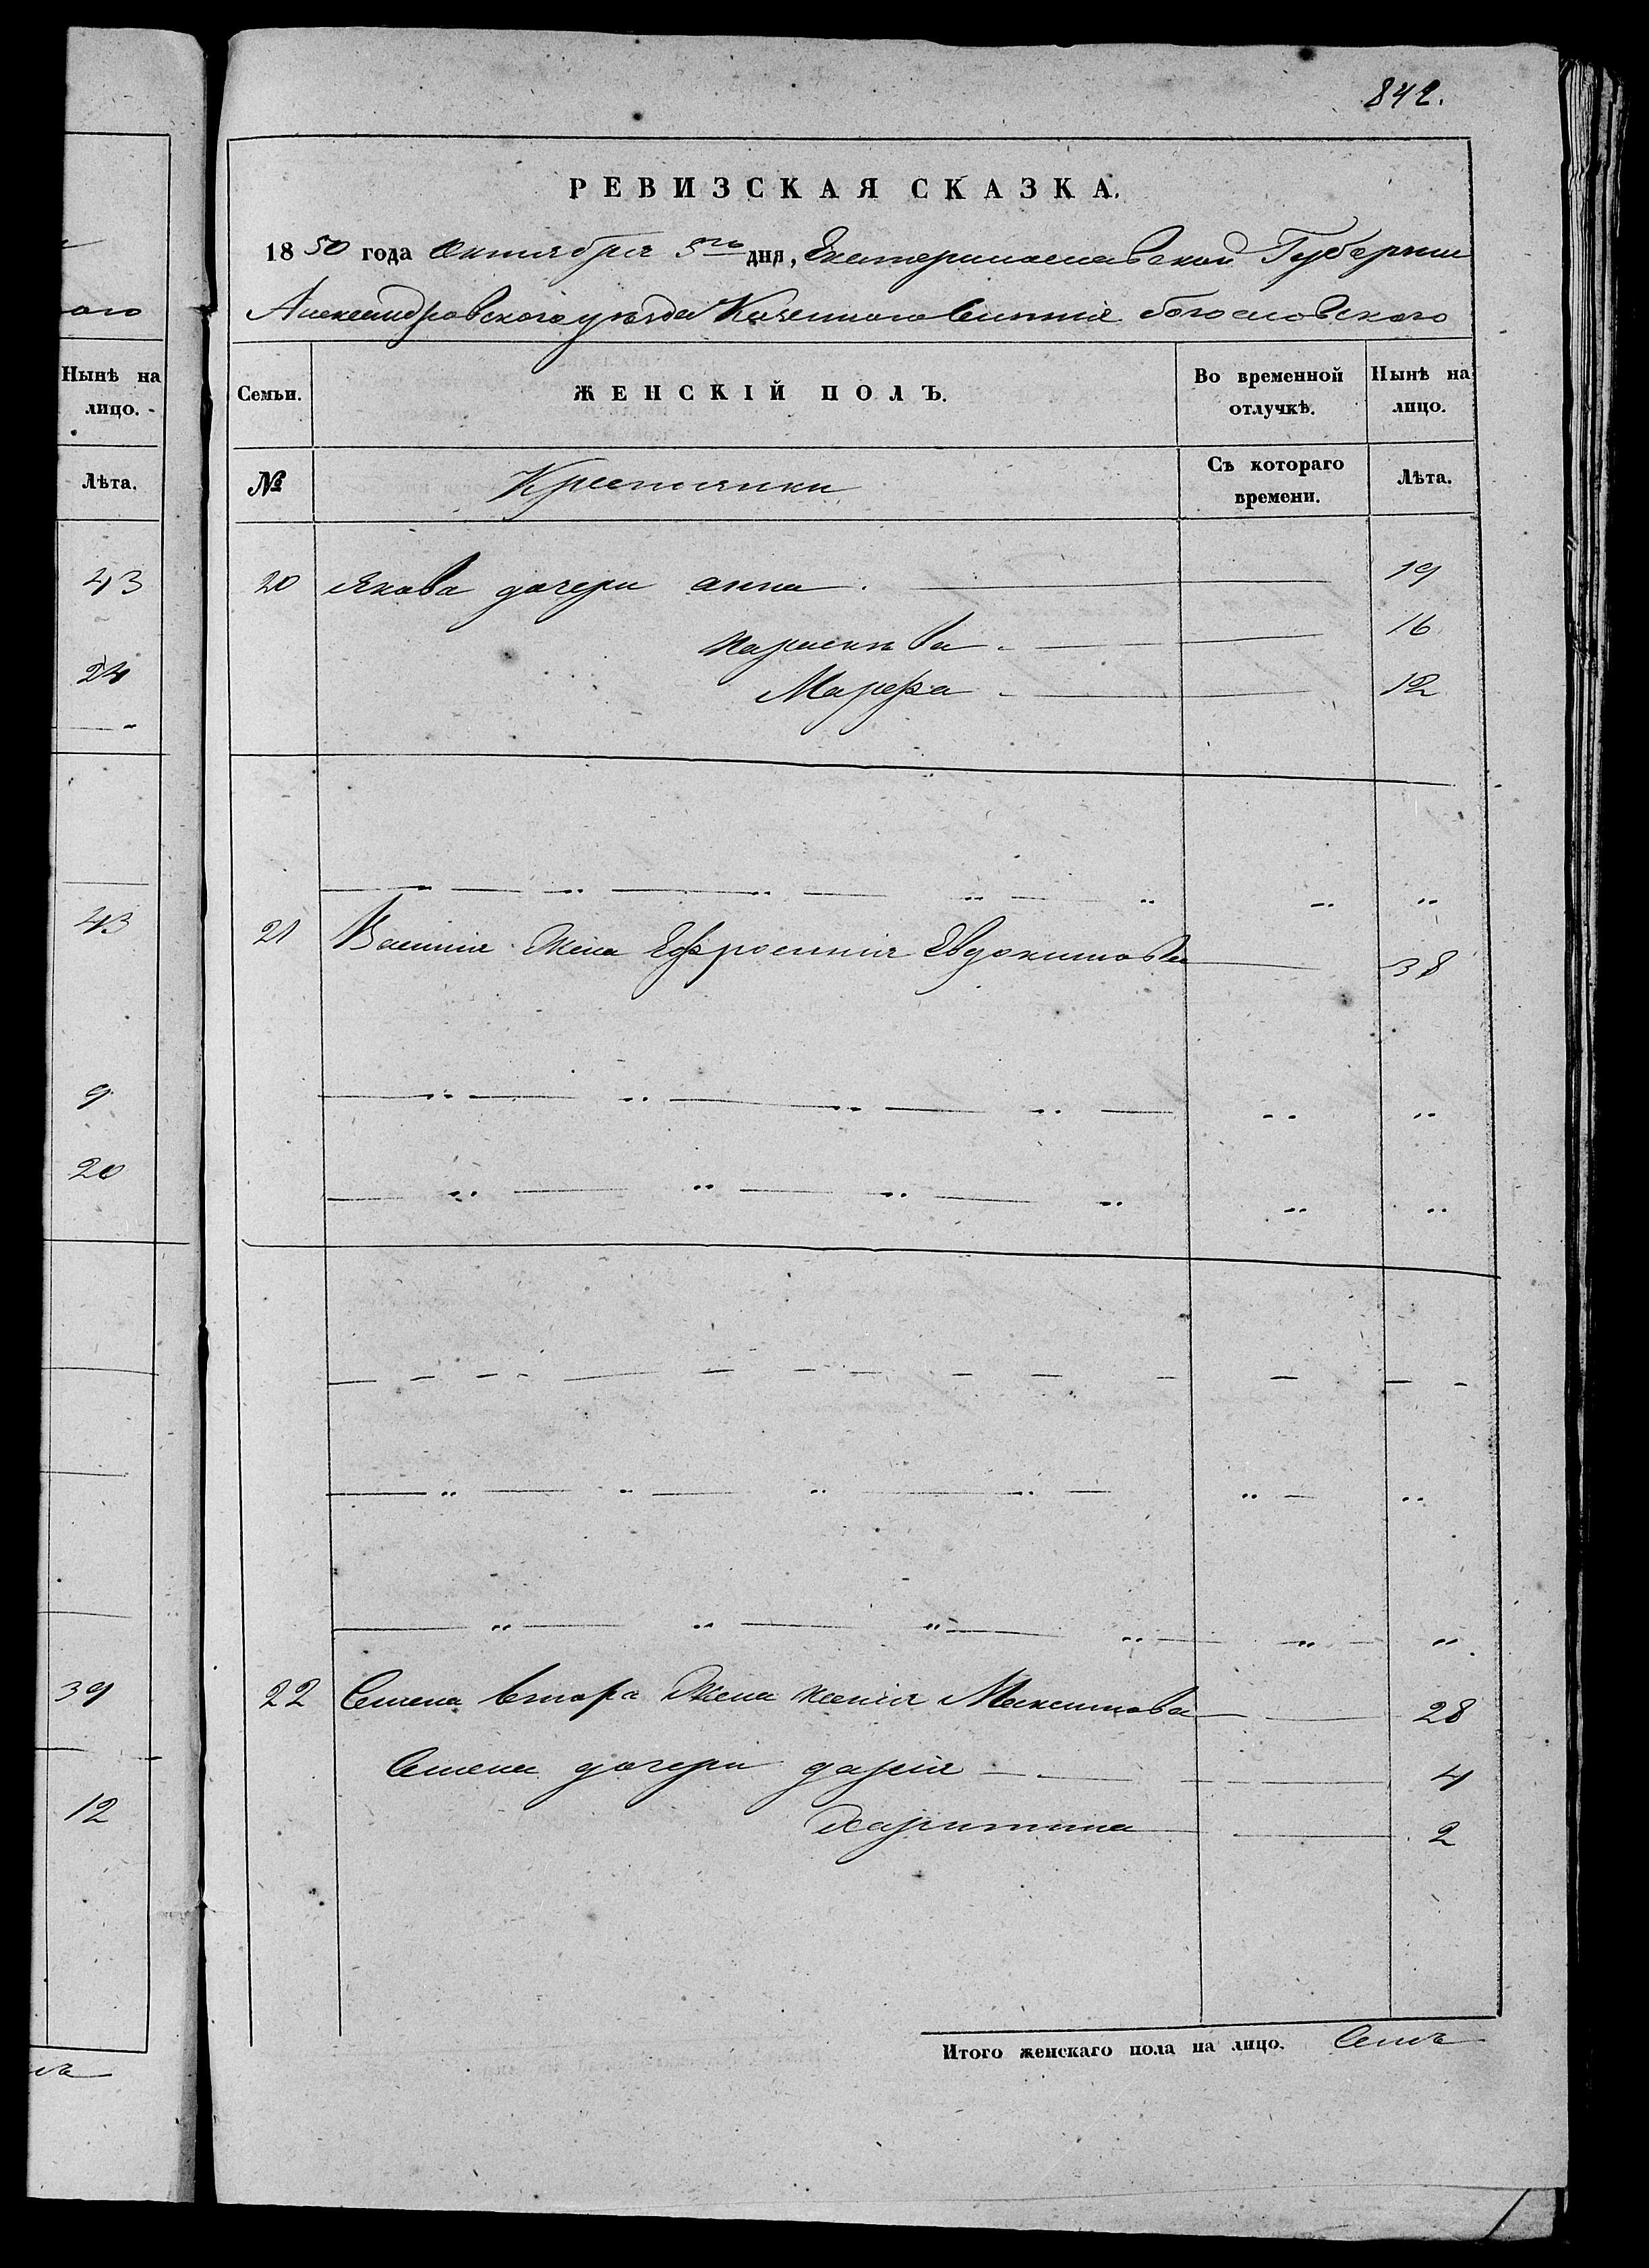 842.
РЕВИЗСКАЯ СКАЗКА.
1850 года Октября 5го дня, Екатеринославской Губернии
Александровского уезда Казенного Селения богословского
ого
Нынѣ на лицо.
Семьи.
ЖЕНСКІЙ ПОЛЪ.
Во временной отлучкѣ.
Нынѣ на лицо.
Лѣта.
№
Крестьянки
Съ котораго времени.
Лѣта.
43
20 Якова дочери анна 19
парасковва 16
24
Марфа 12
43
21 Василия Жена Ефросиния Евдокимова 38
9
20
39
22 Семена втора Жена ксения Максимова 28
Семена дочери дария 4
12
Харитина 2
Итого женскаго пола на лицо. Семь
мь